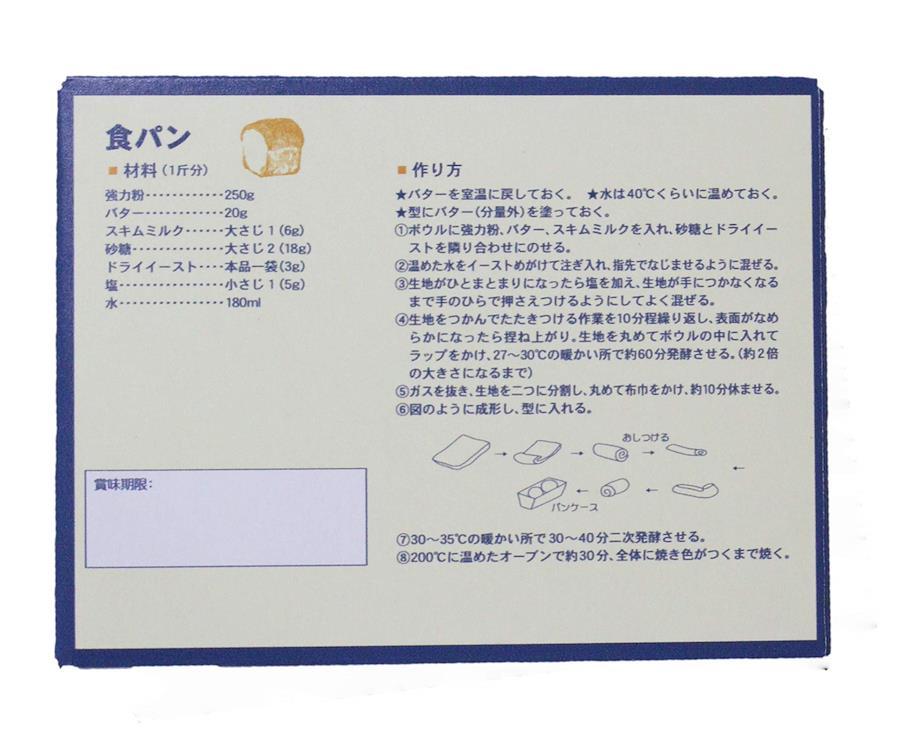 食パン
■ 材料(1斤分)
強力粉‥‥‥‥‥‥250g
バター‥‥‥‥‥‥20g
スキムミルク‥‥‥大さじ1(6g)
砂糖‥‥‥‥‥‥‥大さじ2(18g)
ドライイースト‥‥本品一袋(3g)
塩‥‥‥‥‥‥‥‥小さじ1(5g)
水‥‥‥‥‥‥‥‥180ml
賞味期限:
■ 作り方
★バターを室温に戻しておく。 ★水は40℃くらいに温めておく。
★型にバター(分量外)を塗っておく。
①ボウルに強力粉、バター、スキムミルクを入れ、砂糖とドライイー
ストを隣り合わせにのせる。
②温めた水をイーストめがけて注ぎ入れ、指先でなじませるように混ぜる。
③生地がひとまとまりになったら塩を加え、生地が手につかなくなる
まで手のひらで押さえつけるようにしてよく混ぜる。
④生地をつかんでたたきつける作業を10分程繰り返し、表面がなめ
らかになったら捏ね上がり。生地を丸めてボウルの中に入れて
ラップをかけ、27〜30℃の暖かい所で約60分発酵させる。(約2倍
の大きさになるまで)
⑤ガスを抜き、生地を二つに分割し、丸めて布巾をかけ、約10分休ませる。
⑥図のように成形し、型に入れる。
おしつける
パンケース
⑦30〜35℃の暖かい所で30〜40分二次発酵させる。
⑧200℃に温めたオーブンで約30分、全体に焼き色がつくまで焼く。